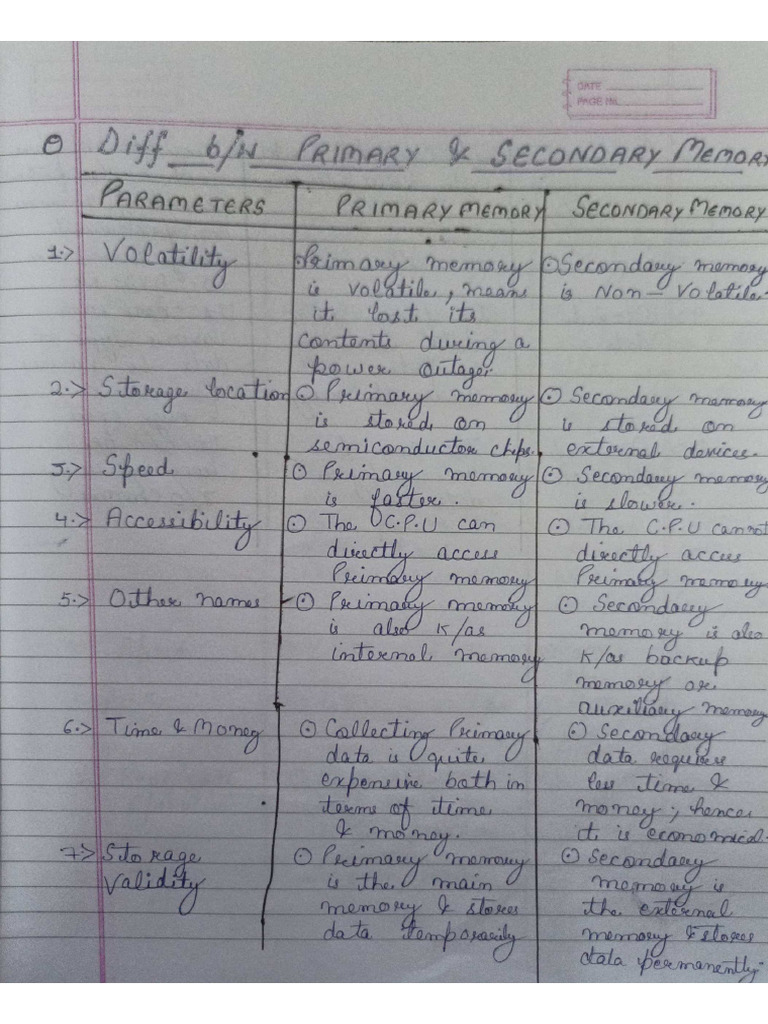 DATE
PAGE No.
Diff b/w PRIMARY & SECONDARY MEMORY
PARAMETERS PRIMARY MEMORY SECONDARY MEMORY
1.> Volatility
Primary memory
is volatile, means
it lost its
contents during a
power outage.
Secondary memory
is Non-Volatile.
2.> Storage location
Primary memory
is stored on
semiconductor chips.
Secondary memory
is stored on
external devices.
3.> Speed
Primary memory
is faster.
Secondary memory
is slower.
4.> Accessibility
The C.P.U can
directly access
Primary memory
The C.P.U cannot
directly acces
Primary memory.
5.> Other names
Primary memory
is also k/as
internal memory
Secondary
memory is also
k/as backup
memory or
auxiliary memory
6.> Time & Money
Collecting Primary
data is quite
expensive both in
terms of time
& money.
Secondary
data requires
less time &
money; hence
it is economical.
7.> Storage
Validity
Primary memory
is the main
memory & stores
data temporarily
Secondary
memory is
the external
memory & stores
data permanently.